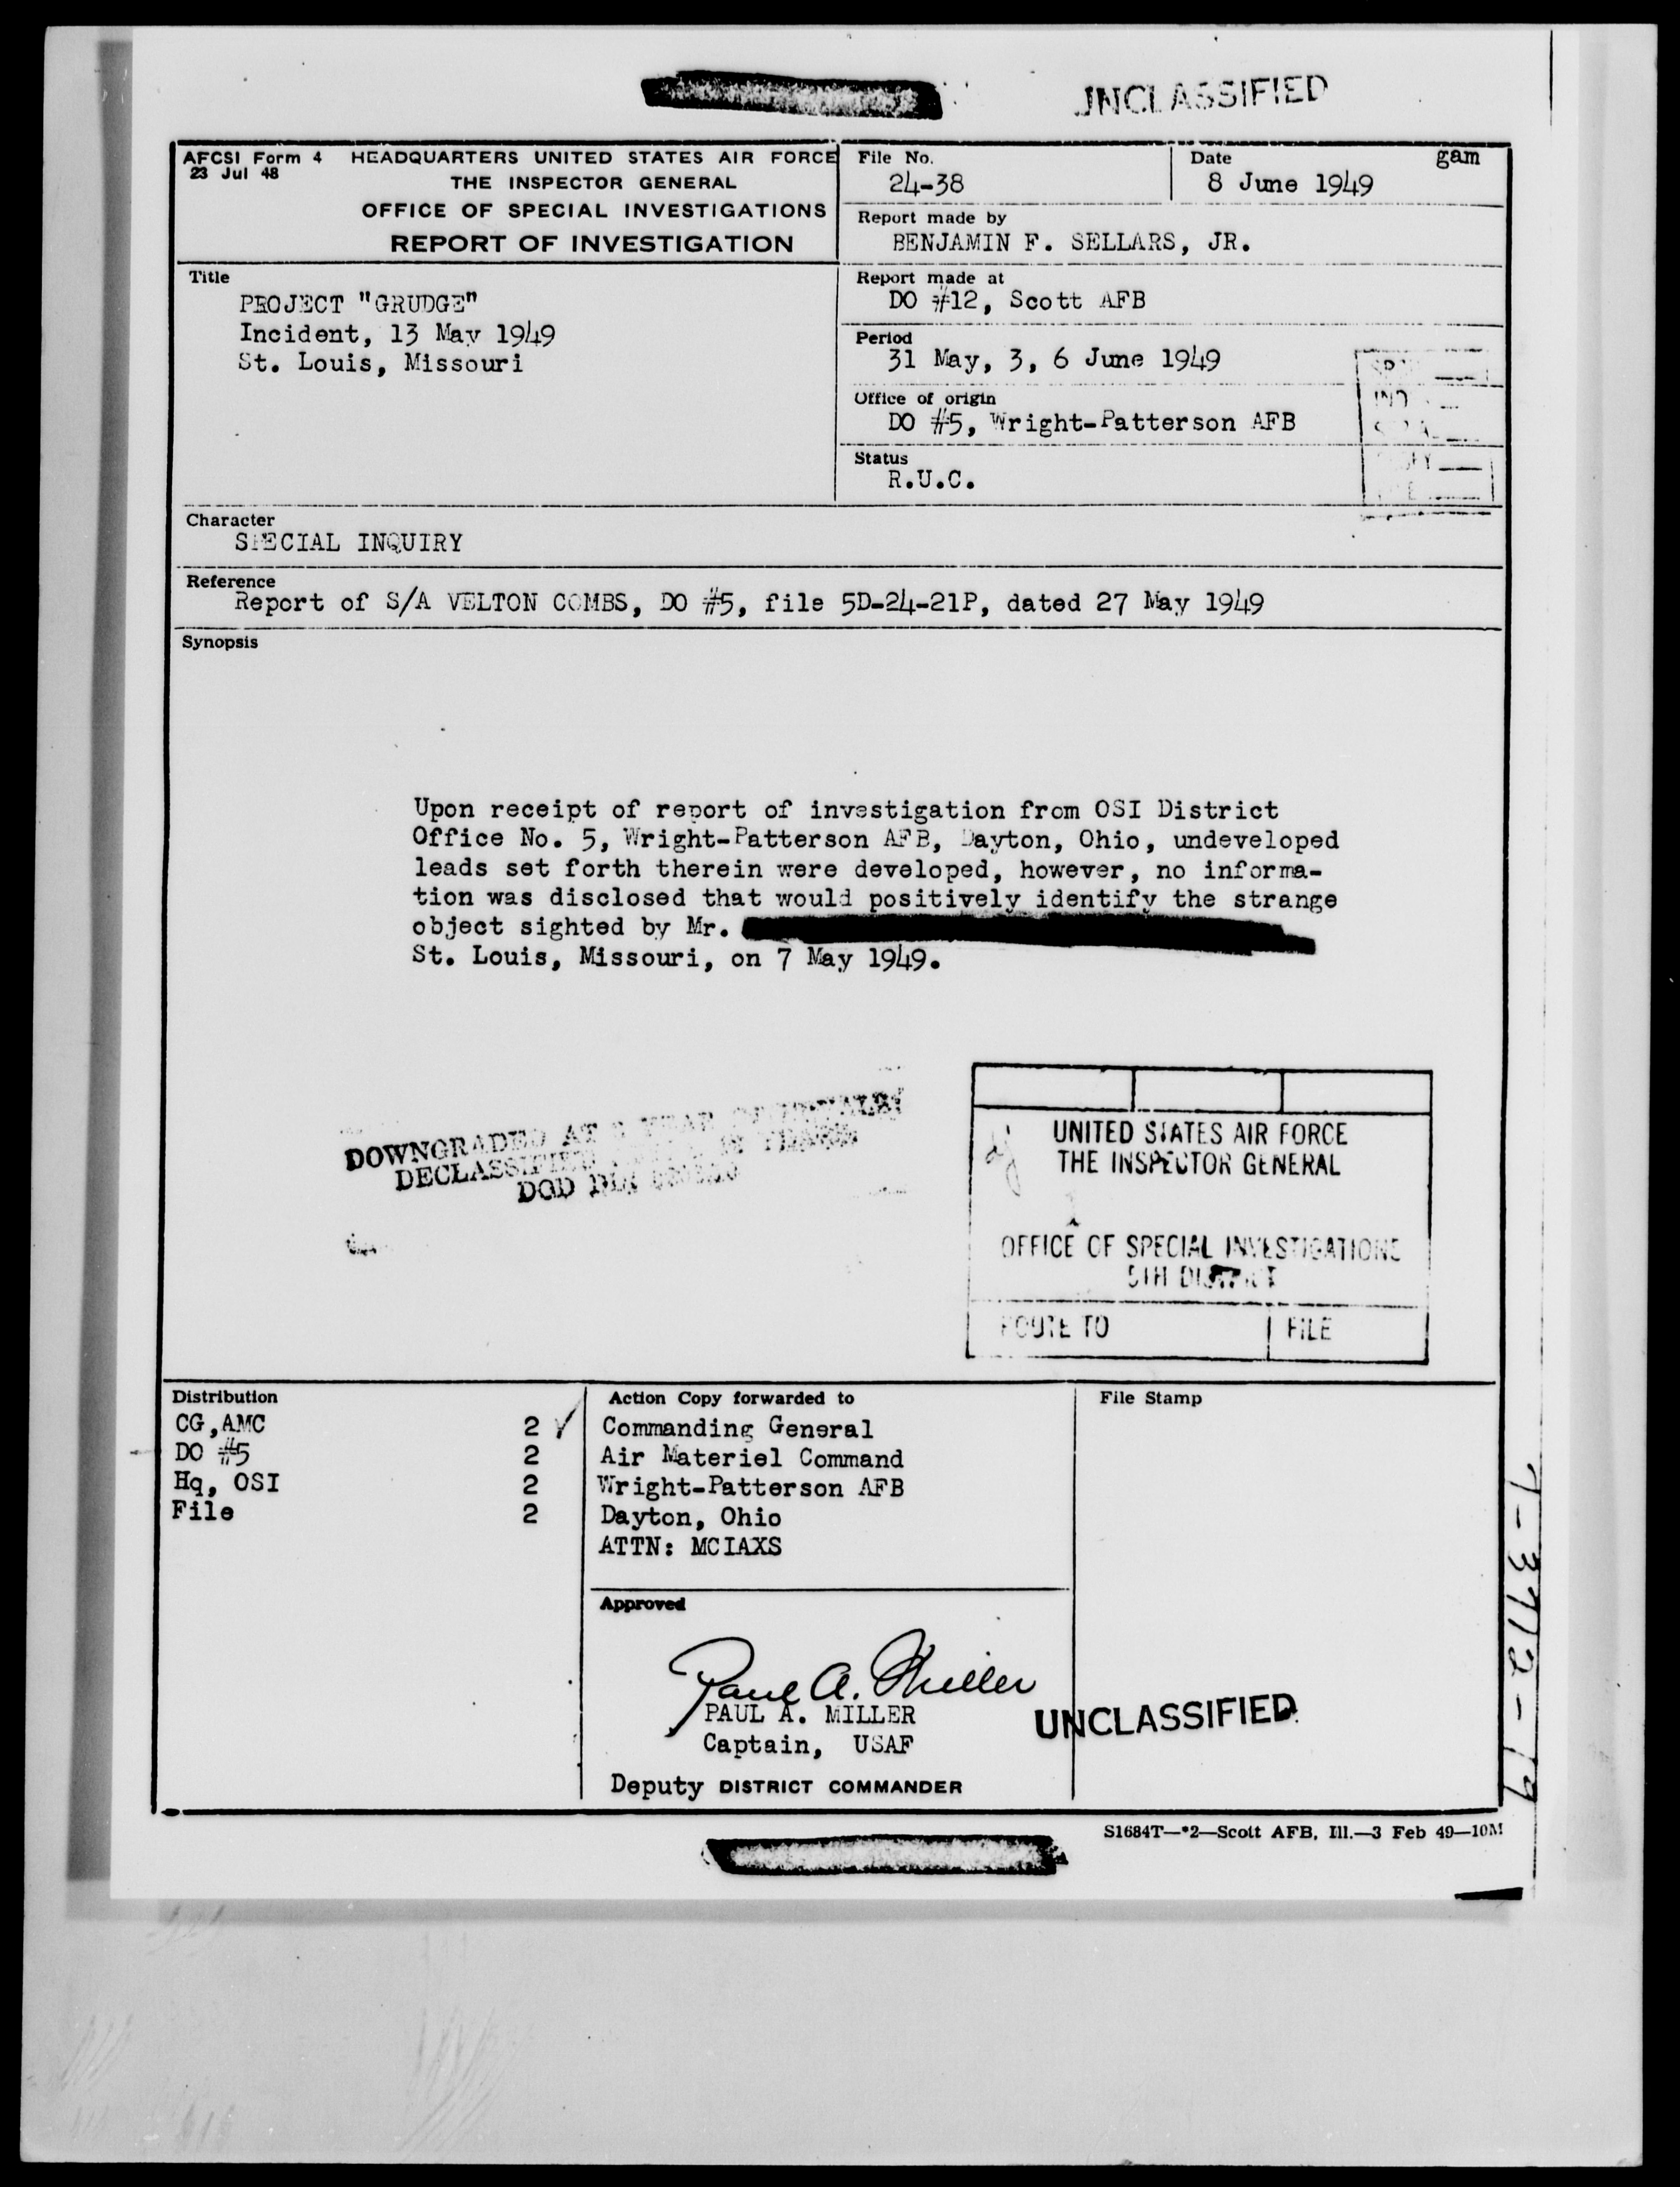 UNCLASSIFIED
AFCSI Form 4
23 Jul 48
HEADQUARTERS UNITED STATES AIR FORCE
THE INSPECTOR GENERAL
OFFICE OF SPECIAL INVESTIGATIONS
REPORT OF INVESTIGATION
File No.
24-38
Date
gam
8 June 1949
Report made by
BENJAMIN F. SELLARS, JR.
Title
PROJECT "GRUDGE"
Incident, 13 May 1949
St. Louis, Missouri
Report made at
DO #12, Scott AFB
Period
31 May, 3, 6 June 1949
Office of origin
DO #5, Wright-Patterson AFB
Status
R.U.C.
Character
SPECIAL INQUIRY
Reference
Report of S/A VELTON COMBS, DO #5, file 5D-24-21P, dated 27 May 1949
Synopsis
Upon receipt of report of investigation from OSI District
Office No. 5, Wright-Patterson AFB, Dayton, Ohio, undeveloped
leads set forth therein were developed, however, no informa-
tion was disclosed that would positively identify the strange
object sighted by Mr.
St. Louis, Missouri, on 7 May 1949.
DOWNGRADED AT 3 YEAR INTERVALS
DECLASSIFIED AFTER 12 YEARS
DOD DIR
UNITED STATES AIR FORCE
THE INSPECTOR GENERAL
OFFICE OF SPECIAL INVESTIGATIONS
5TH DISTRICT
ROUTE TO
FILE
Distribution
CG,AMC 2
DO #5 2
Hq, OSI 2
File 2
Action Copy forwarded to
Commanding General
Air Materiel Command
Wright-Patterson AFB
Dayton, Ohio
ATTN: MCIAXS
File Stamp
Approved
Paul A. Miller
PAUL A. MILLER
Captain, USAF
Deputy DISTRICT COMMANDER
UNCLASSIFIED
S1684T—*2—Scott AFB, Ill.—3 Feb 49—10M